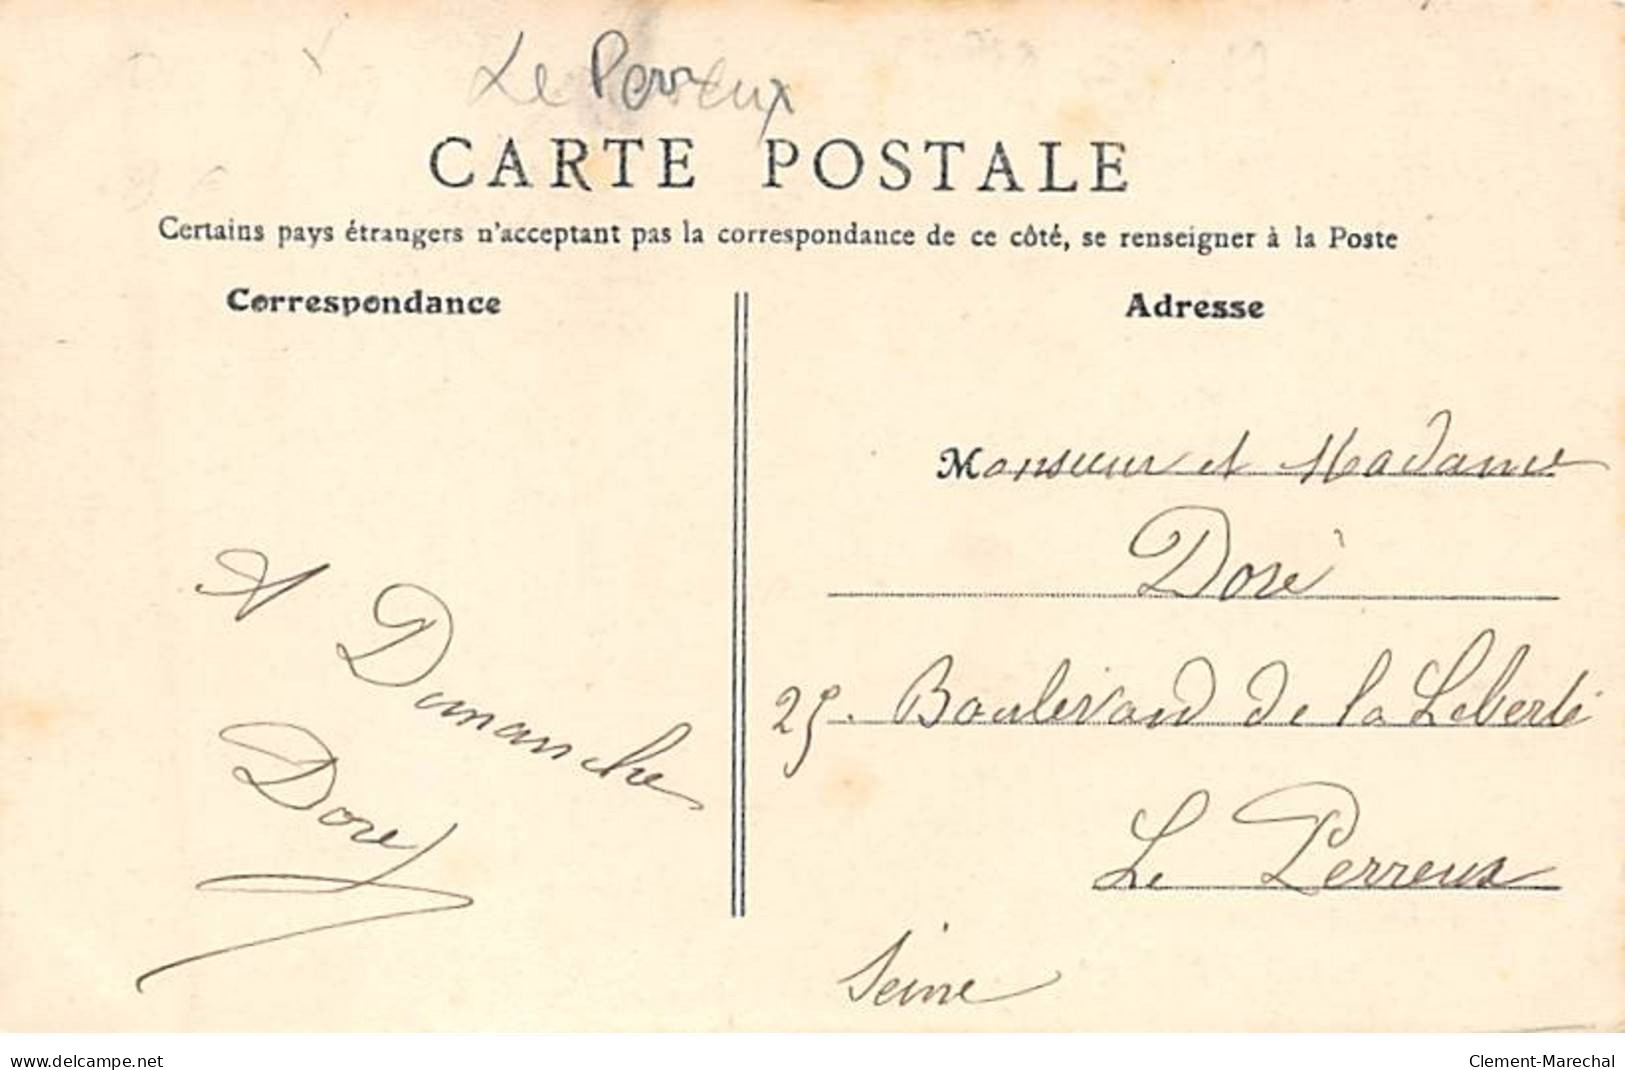 Le Perreux
CARTE POSTALE
Certains pays étrangers n'acceptant pas la correspondance de ce côté, se renseigner à la Poste
Correspondance
A Dimanche
Doré
Adresse
Monsieur et Madame
Doré
25. Boulevard de la Liberté
Le Perreux
Seine
www.delcampe.net
Clement-Marechal